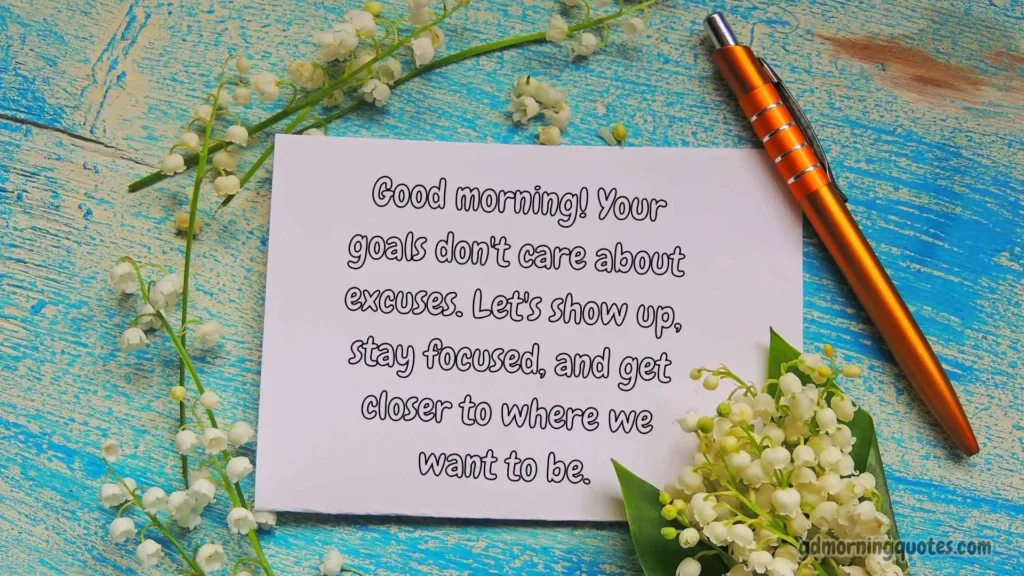 Good morning! Your
goals don't care about
excuses. Let's show up,
stay focused, and get
closer to where we
want to be.
gdmorningquotes.com